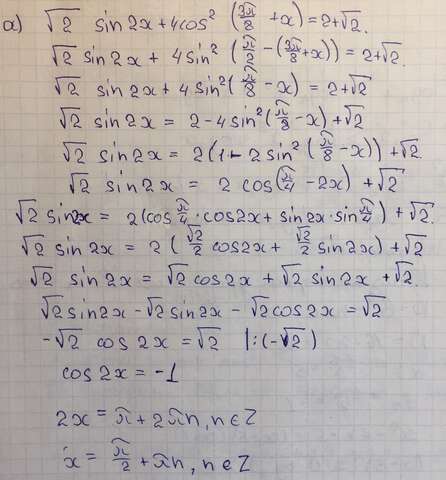 а) √2 sin2x + 4cos² (3π/8 + x) = 2+√2.
√2 sin2x + 4 sin² (π/2 − (3π/8 + x)) = 2+√2.
√2 sin2x + 4 sin² (π/8 − x) = 2+√2
√2 sin2x = 2 − 4 sin² (π/8 − x) + √2
√2 sin2x = 2(1 − 2 sin² (π/8 − x)) + √2
√2 sin2x = 2 cos(π/4 − 2x) + √2
√2 sin2x = 2(cos π/4 · cos2x + sin2x · sin π/4) + √2.
√2 sin2x = 2 (√2/2 cos2x + √2/2 sin2x) + √2
√2 sin2x = √2 cos2x + √2 sin2x + √2.
√2 sin2x − √2 sin2x − √2 cos2x = √2
−√2 cos2x = √2 |:(−√2)
cos2x = −1
2x = π + 2πn, n∈Z
x = π/2 + πn, n∈Z